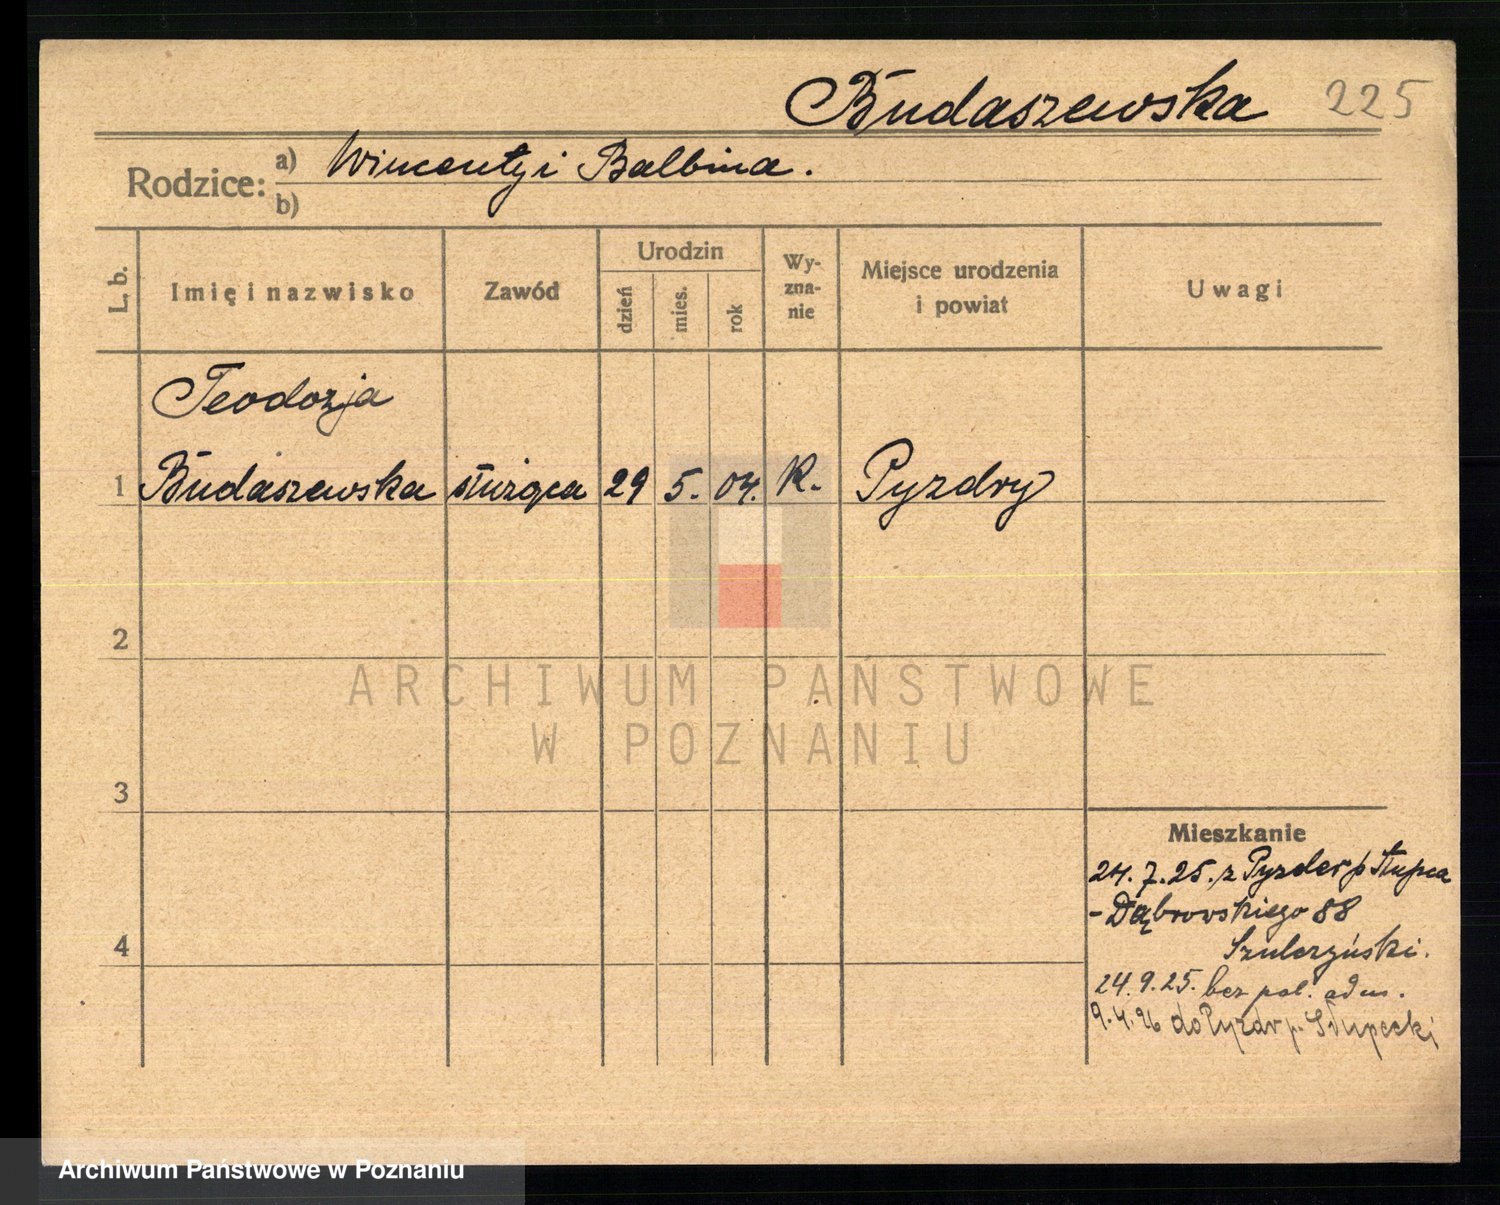 Budaszewska 225
Rodzice: a) Wincenty i Balbina.
b)
L. b.
Imię i nazwisko
Zawód
Urodzin
dzień
mies.
rok
Wy-
zna-
nie
Miejsce urodzenia
i powiat
Uwagi
Teodozja
1 Budaszewska służąca 29 5. 04. K. Pyzdry
2
ARCHIWUM PAŃSTWOWE
W POZNANIU
3
Mieszkanie
24.7.25. z Pyzder p Słupca
- Dąbrowskiego 88
Szulczyński.
4
24.9.25. bez pol. adm.
9.4.26 do Pyzdr p. Słupecki
Archiwum Państwowe w Poznaniu